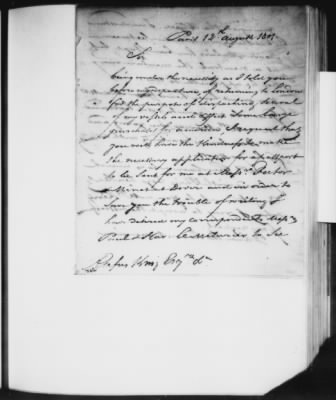 Paris 12th August 1801
Sir
being under the necessity as I told you
before my departure of returning to London
for the purpose of dispatching several
of my vessels and effect some large
purchases for America I request that
you will have the kindness to make
the necessary application for a passport
to be sent for me at Messrs. Fector
Minet at Dover and in order to
save you the trouble of writing I
have desired my correspondents Messrs
to see
Rufus King Esqre &a